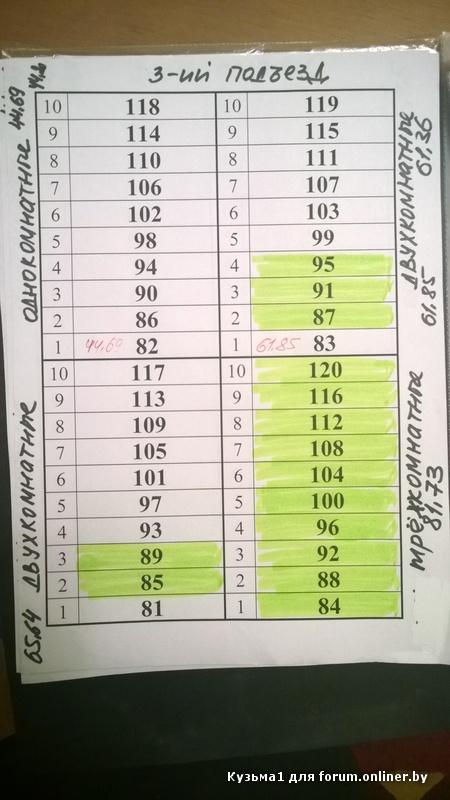 3-ий подъезд
44,69
однокомнатные
двухкомнатные
61,36
61,85
10 118 10 119
9 114 9 115
8 110 8 111
7 106 7 107
6 102 6 103
5 98 5 99
4 94 4 95
3 90 3 91
2 86 2 87
1 44,69 82 1 61,85 83
двухкомнатные
65,64
трёхкомнатные
81,73
10 117 10 120
9 113 9 116
8 109 8 112
7 105 7 108
6 101 6 104
5 97 5 100
4 93 4 96
3 89 3 92
2 85 2 88
1 81 1 84
Кузьма1 для forum.onliner.by